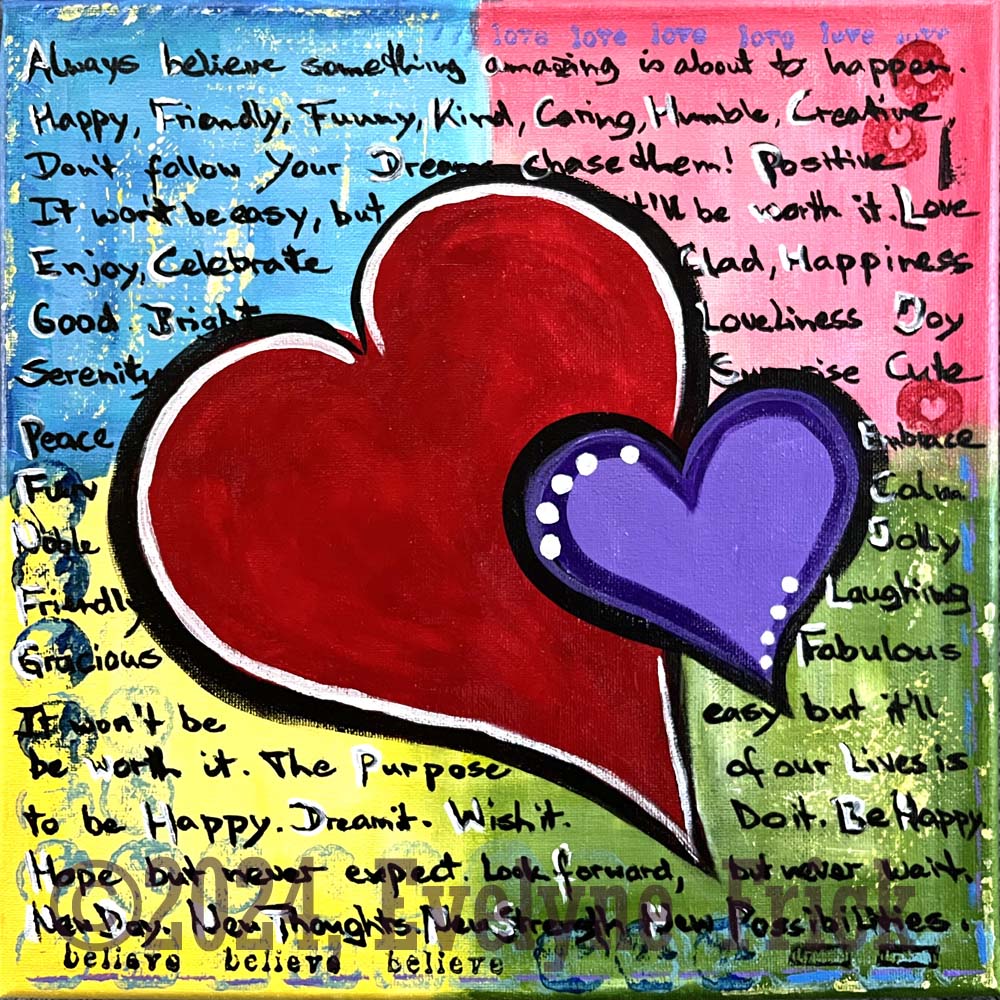 love love love love love love
Always believe something amazing is about to happen.
Happy, Friendly, Funny, Kind, Caring, Humble, Creative,
Don't follow Your Dreams chase them! Positive
It won't be easy, but it'll be worth it. Love
Enjoy, Celebrate Glad, Happiness
Good Bright Loveliness Joy
Serenity Surprise Cute
Peace Embrace
Fun Calm
Noble Jolly
Friendly Laughing
Gracious Fabulous
It won't be easy but it'll
be worth it. The Purpose of our Lives is
to be Happy. Dream it. Wish it. Do it. Be Happy.
Hope but never expect. Look forward, but never wait.
©2024, Evelyne Frick
New Day. New Thoughts. New Strength New Possibilities.
believe believe believe